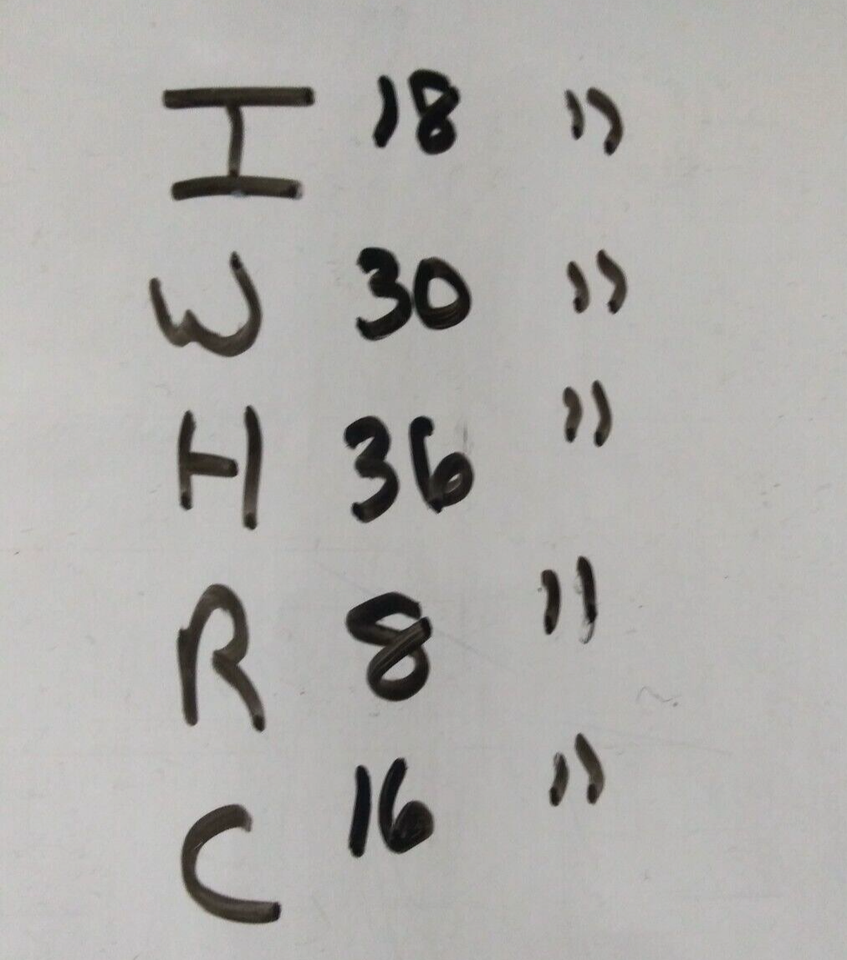 I 18 "
W 30 "
H 36 "
R 8 "
C 16 "